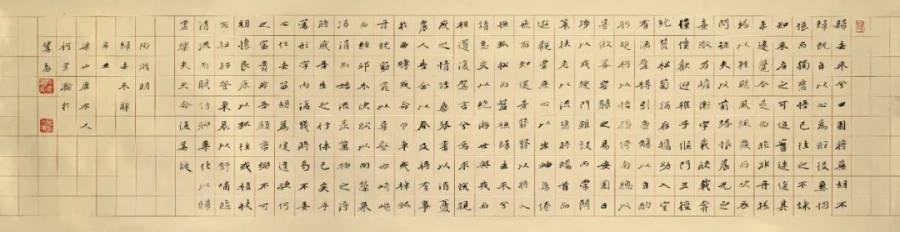 歸去來兮田園將蕪胡不
歸既自以心為形役奚惆
悵而獨悲悟已往之不諫
知來者之可追實迷途其
未遠覺今是而昨非舟搖
搖以輕颺風飄飄而吹衣
問征夫以前路恨晨光之
熹微乃瞻衡宇載欣載奔
僮僕歡迎稚子候門三徑
就荒松菊猶存攜幼入室
有酒盈樽引壺觴以自酌
眄庭柯以怡顏倚南窗以
寄傲審容膝之易安園日
涉以成趣門雖設而常關
策扶老以流憩時矯首而
遐觀雲無心以出岫鳥倦
飛而知還景翳翳以將入
撫孤松而盤桓歸去來兮
請息交以絕游世與我而
相違復駕言兮焉求悅親
戚之情話樂琴書以消憂
農人告余以春及將有事
於西疇或命巾車或棹孤
舟既窈窕以尋壑亦崎嶇
而經邱木欣欣以向榮泉
涓涓而始流善萬物之得
時感吾生之行休已矣乎
寓形宇內復幾時曷不委
心任去留胡為遑遑欲何
之富貴非吾願帝鄉不可
期懷良辰以孤往或植杖
而耘耔登東皋以舒嘯臨
清流而賦詩聊乘化以歸
盡樂夫天命復奚疑
陶淵明
歸去來辭
梁山居水人
柯雲瀚於
鷺島